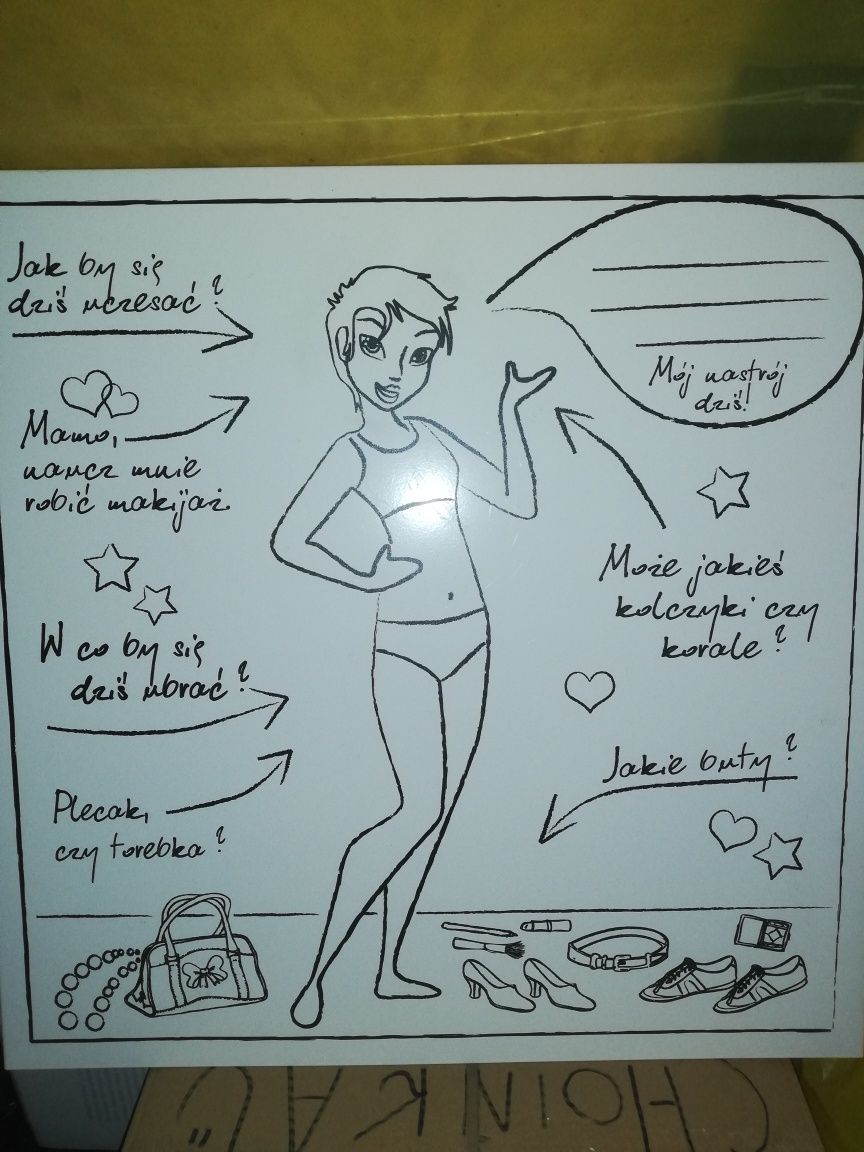 Jak by się
dziś uczesać?
Mamo,
naucz mnie
robić makijaż.
W co by się
dziś ubrać?
Plecak,
czy torebka?
Mój nastrój
dziś!
Może jakieś
kolczyki czy
korale?
Jakie buty?
CHOINKA